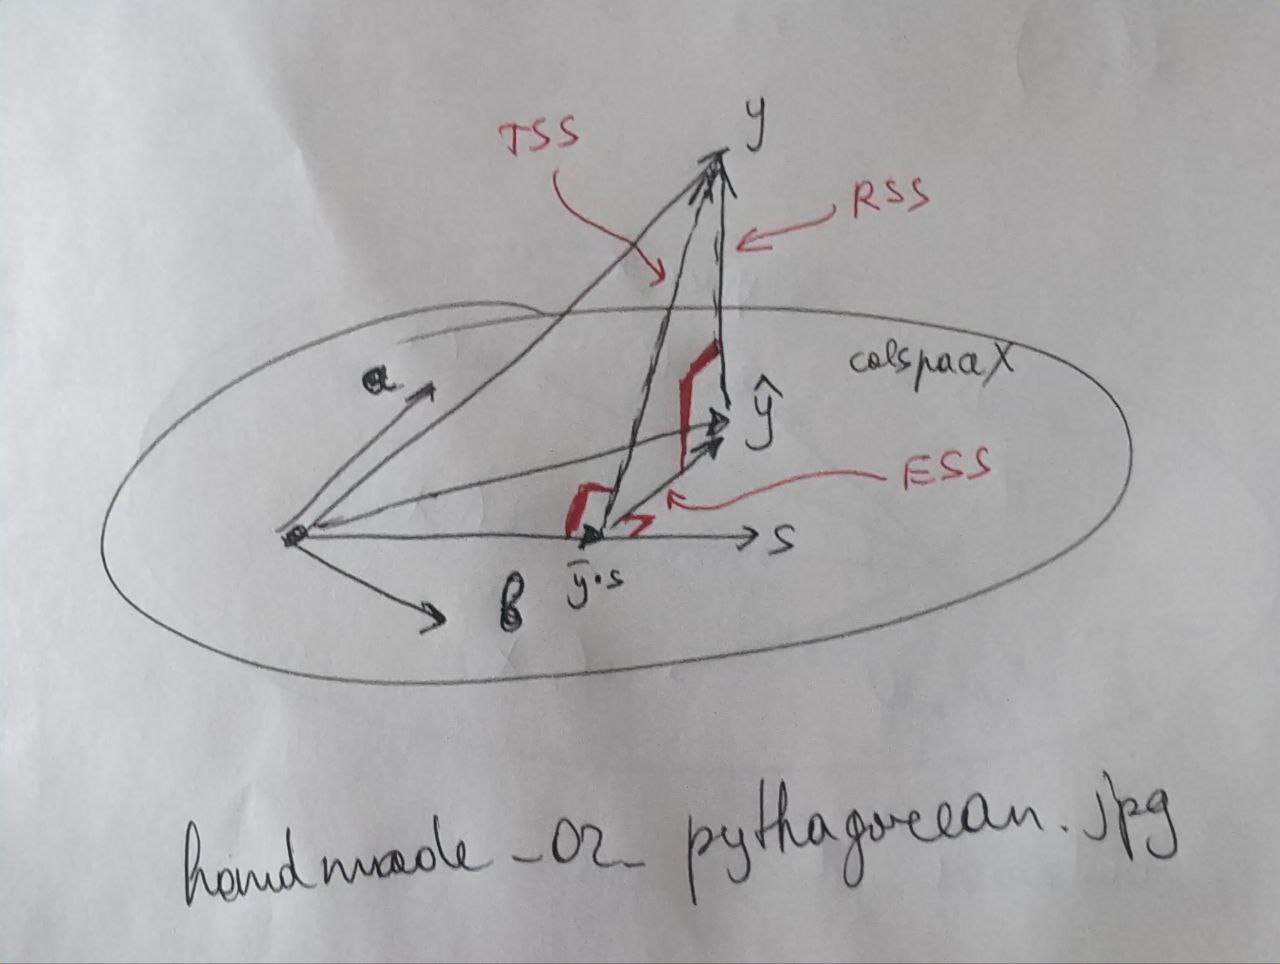 y
TSS
RSS
colspace X
a
ŷ
ESS
s
b
ȳ·s
handmade_02_pythagorean.jpg